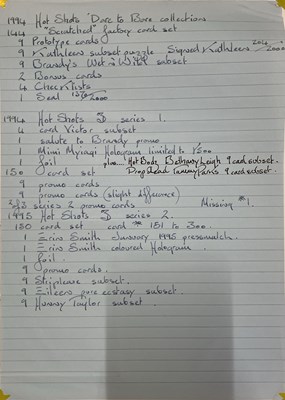 1994 Hot Shots 'Dare to Bare collections
"Scratched" factory card set
9 Prototype cards
9 Kathleens subset puzzle Signed Kathleens 2000
9 Brandy's Wet n Wild subset
2 Bonus cards
4 Checklists
1 Seal /2000
1994 Hot Shots series 1.
4 card Victor subset
1 salute to Brandy promo
1 Mimi Miyagi Hologram limited to 1/500
1 foil plus Hot Body Bethany Leigh 9 card subset
150 card set Drop Dead Tammy Parks 9 card subset
9 promo cards
9 promo cards (slight difference)
series 2 promo cards Mission #1.
1995 Hot Shots series 2.
150 card set card 151 to 300.
1 Erin Smith January 1995 pressmatch.
1 Erin Smith coloured Hologram.
1 foil.
9 promo cards.
9 Striptease subset.
9 Eileens pure ecstasy subset.
9 Hunny Taylor subset